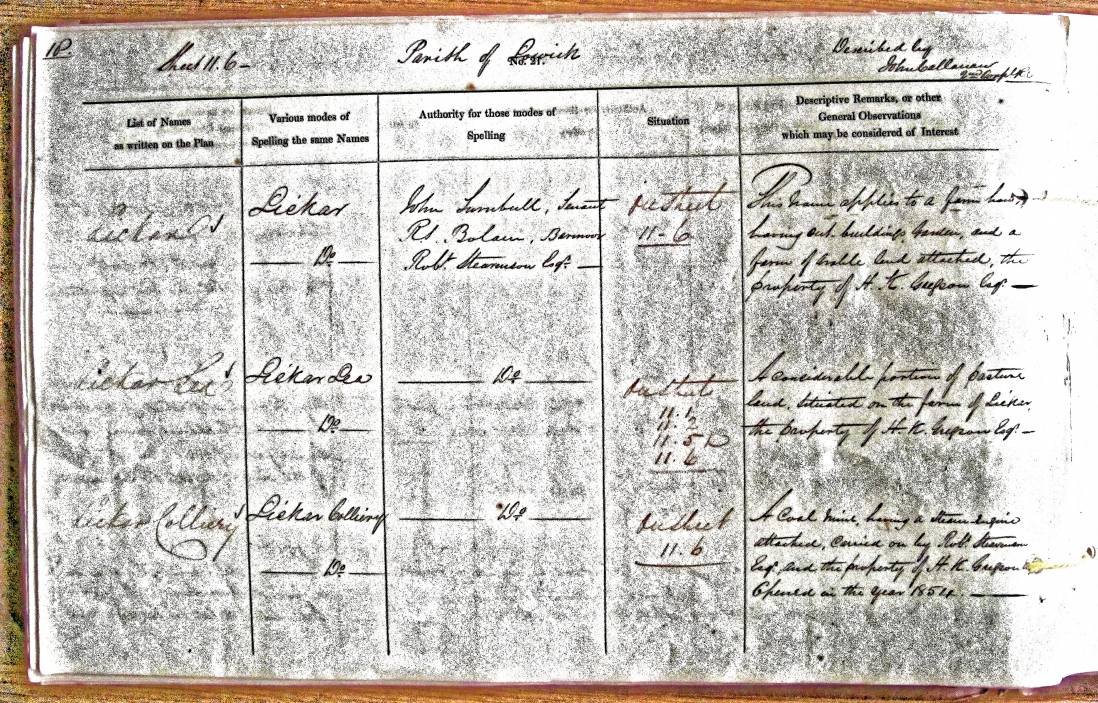 18
Sheet 11.6 -
Parish of Lowick
No. 21.
Described by
John Callanan
2nd Corpl R.E
List of Names
as written on the Plan
Various modes of
Spelling the same Names
Authority for those modes of
Spelling
Situation
Descriptive Remarks, or other
General Observations
which may be considered of Interest
Lickar
Lickar
Do
John Turnbull, Tenant
Rt. Bolam, Barmoor
Robt. Stevenson Esqr. —
On Sheet
11-6
This name applies to a farm house,
having out buildings, Garden, and a
farm of arable land attached, the
property of H. K. Gregson Esqr. —
Lickar Lea
Lickar Lea
Do
Do
On Sheets
11.1
11.2
11.5 &
11.6
A considerable portion of Pasture
land, situated on the farm of Lickar,
the property of H. K. Gregson Esqr. —
Lickar Colliery
Lickar Colliery
Do
Do
On Sheet
11.6
A Coal Mine, having a Steam Engine
attached, carried on by Robt. Stevenson
Esqr. and the property of H. K. Gregson
Opened in the year 1854 —